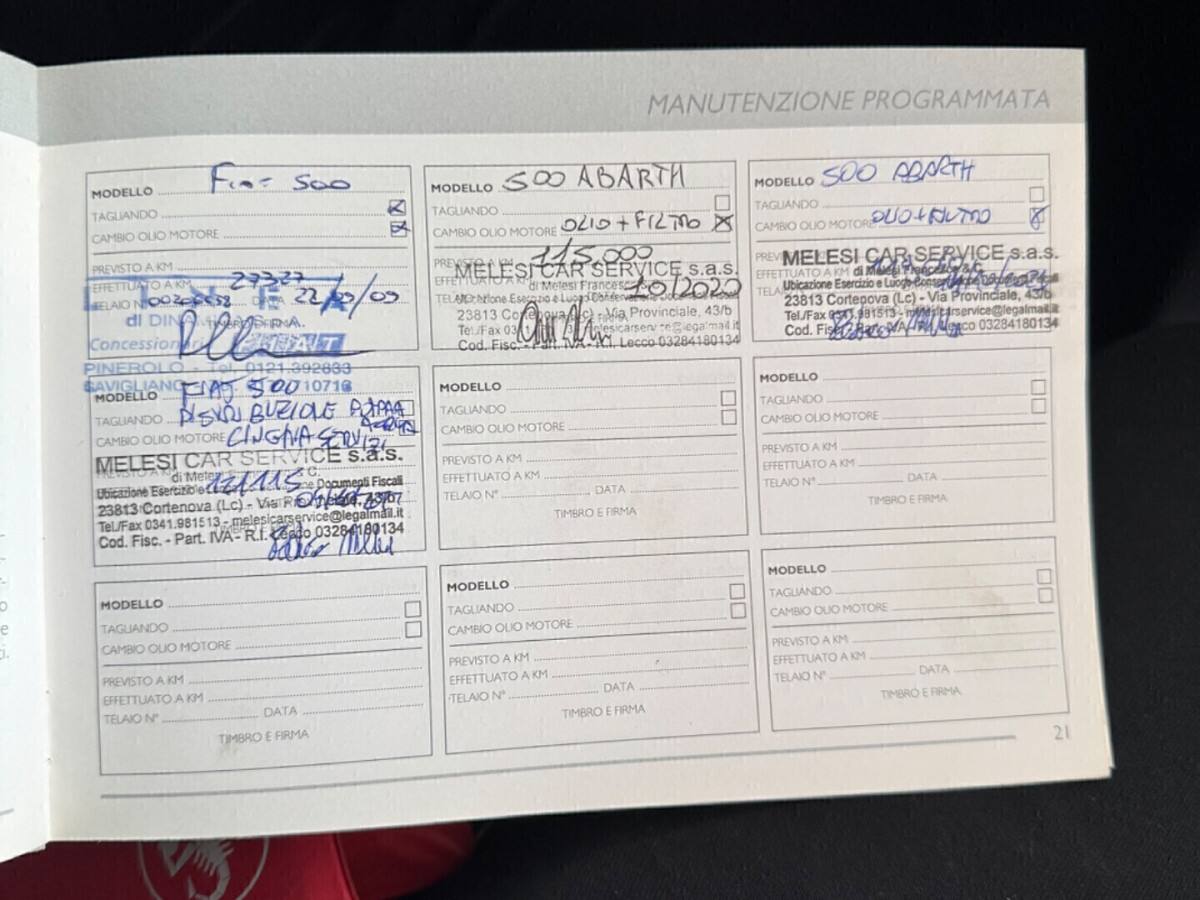 MANUTENZIONE PROGRAMMATA
MODELLO Fiat 500
TAGLIANDO
CAMBIO OLIO MOTORE
PREVISTO A KM
EFFETTUATO A KM 27327
TELAIO N° DATA 22/09/09
di
TIMBRO E FIRMA
Concessionari FIAT
PINEROLO - Tel. 0121.392833
SAVIGLIANO 10716
MODELLO 500 ABARTH
TAGLIANDO
CAMBIO OLIO MOTORE OLIO + FILTRO
PREVISTO 115.000
MELESI CAR SERVICE s.a.s.
di Melesi Francesco
10/2020
Ubicazione Esercizio e Luogo Conservazione Documenti Fiscali
23813 Cortenova (Lc) - Via Provinciale, 43/b
Tel./Fax melesicarservice@legalmail.it
Cod. Fisc. - Part. IVA - R.I. Lecco 03284180134
MODELLO 500 ABARTH
TAGLIANDO
CAMBIO OLIO MOTORE OLIO + FILTRO
MELESI CAR SERVICE s.a.s.
EFFETTUATO A KM di Melesi Francesco & C.
Ubicazione Esercizio e Luogo Conservazione Documenti Fiscali
23813 Cortenova (Lc) - Via Provinciale, 43/b
Tel./Fax 0341.981513 - melesicarservice@legalmail.it
Cod. Fisc. - Part. IVA - R.I. Lecco 03284180134
MODELLO FIAT 500
TAGLIANDO DISTRIBUZIONE POMPA
ACQUA
CAMBIO OLIO MOTORE CINGHIA SERVIZI
MELESI CAR SERVICE s.a.s.
di Melesi
121115
Ubicazione Esercizio e Documenti Fiscali
23813 Cortenova (Lc) - Via Provinciale, 43/b
Tel./Fax 0341.981513 - melesicarservice@legalmail.it
Cod. Fisc. - Part. IVA - R.I. Lecco 03284180134
MODELLO
TAGLIANDO
CAMBIO OLIO MOTORE
PREVISTO A KM
EFFETTUATO A KM
TELAIO N° DATA
TIMBRO E FIRMA
MODELLO
TAGLIANDO
CAMBIO OLIO MOTORE
PREVISTO A KM
EFFETTUATO A KM
TELAIO N° DATA
TIMBRO E FIRMA
MODELLO
TAGLIANDO
CAMBIO OLIO MOTORE
PREVISTO A KM
EFFETTUATO A KM
TELAIO N° DATA
TIMBRO E FIRMA
MODELLO
TAGLIANDO
CAMBIO OLIO MOTORE
PREVISTO A KM
EFFETTUATO A KM
TELAIO N° DATA
TIMBRO E FIRMA
MODELLO
TAGLIANDO
CAMBIO OLIO MOTORE
PREVISTO A KM
EFFETTUATO A KM
TELAIO N° DATA
TIMBRO E FIRMA
21